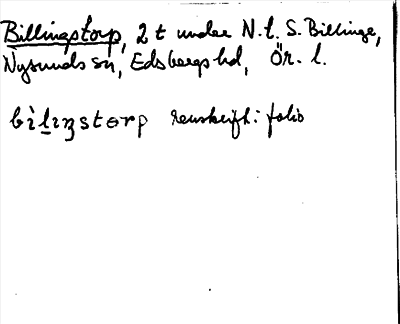 Billingstorp, 2 t under N. l. S. Billinge,
Nysunds sn, Edsbergs hd, Ör. l.
bìlɩŋstɵrp renskrift i folio